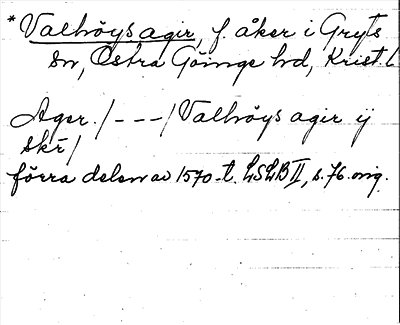 * Valhöysagir, f. åker i Gryts
sn, Östra Göinge hd, Krist. L
Ager. / - - - / Valhöysagir ij
skr /
förra delen av 1570-t. LSLB II, s. 76. orig.